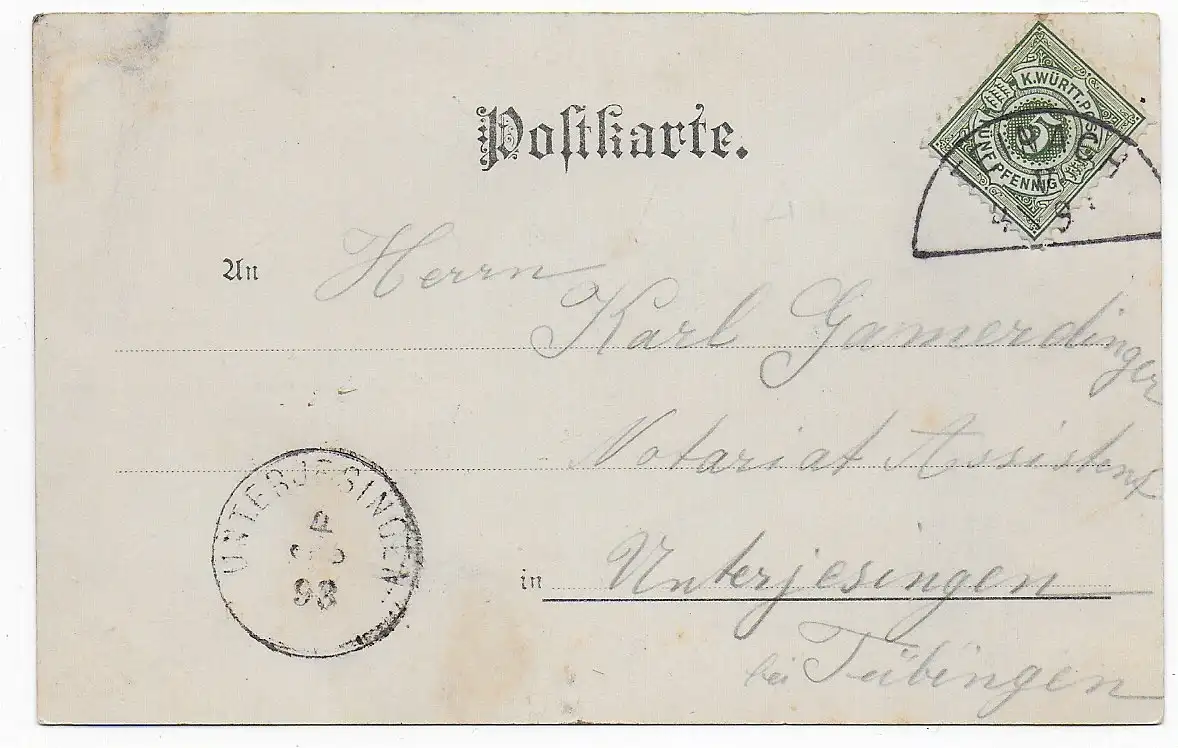 Postkarte.
K.WÜRTT.P.
FÜNF PFENNIG
5
An Herrn
Karl Gamerdinger
Notariat Assistent
in Unterjesingen
bei Tübingen
UNTERJESINGEN
93